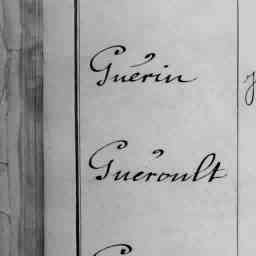 Guérin
Guéroult